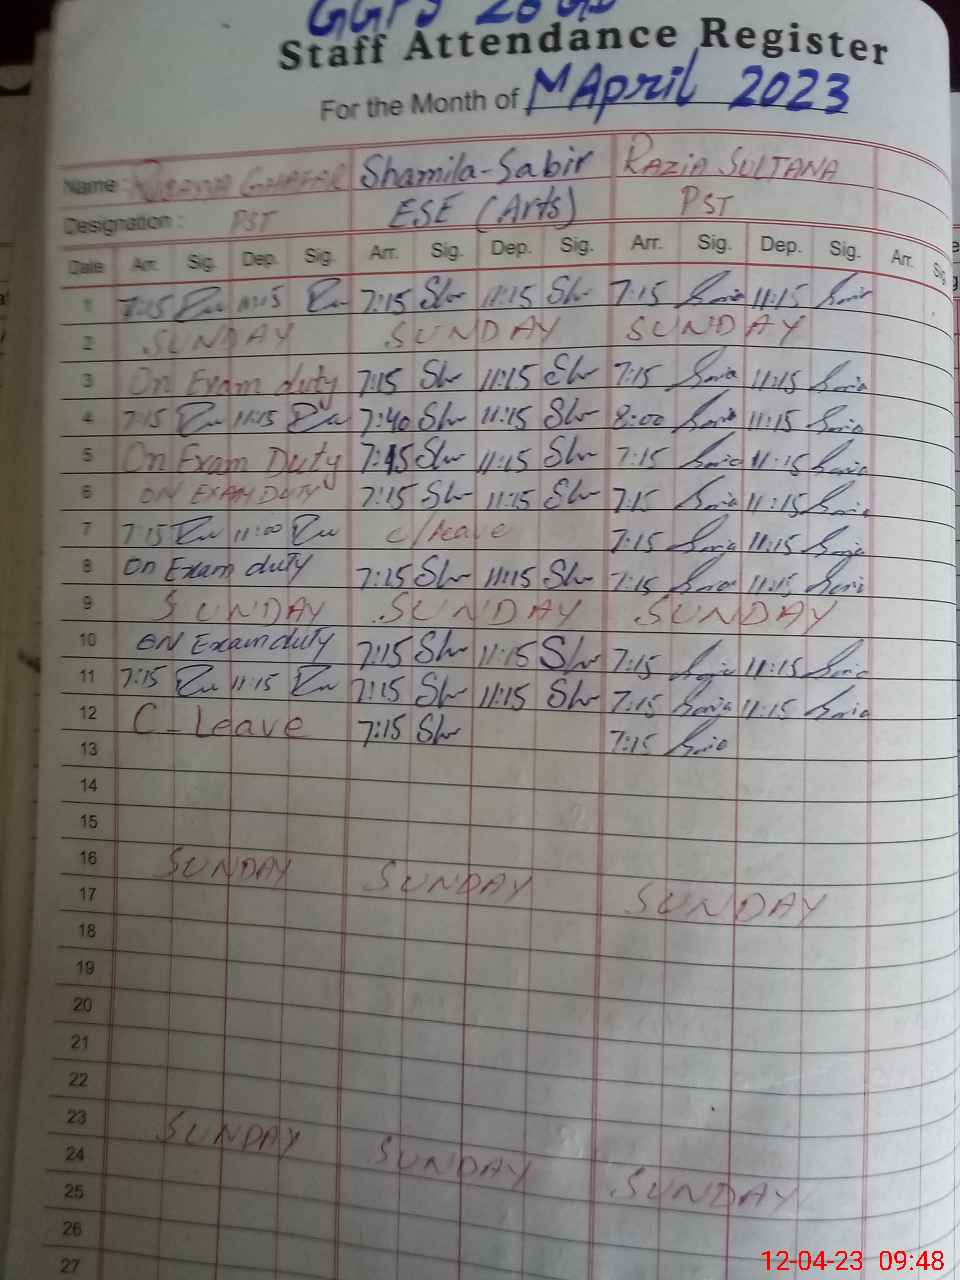 Staff Attendance Register
For the Month of April 2023
Name: GHAFAR Shamila-Sabir RAZIA SULTANA
Designation: PST ESE (Arts) PST
Date Arr. Sig. Dep. Sig. Arr. Sig. Dep. Sig. Arr. Sig. Dep. Sig. Arr. Sig.
1 7:15 11:15 7:15 Sh 11:15 Sh 7:15 11:15
2 SUNDAY SUNDAY SUNDAY
3 On Exam duty 7:15 Sh 11:15 Sh 7:15 11:15
4 7:15 11:15 7:40 Sh 11:15 Sh 8:00 11:15
5 On Exam Duty 7:15 Sh 11:15 Sh 7:15 11:15
6 ON EXAM DUTY 7:15 Sh 11:15 Sh 7:15 11:15
7 7:15 11:00 c/leave 7:15 11:15
8 On Exam duty 7:15 Sh 11:15 Sh 7:15 11:15
9 SUNDAY SUNDAY SUNDAY
10 ON Exam duty 7:15 Sh 11:15 Sh 7:15 11:15
11 7:15 11:15 7:15 Sh 11:15 Sh 7:15 11:15
12 C-Leave 7:15 Sh 7:15
13
14
15
16 SUNDAY SUNDAY SUNDAY
17
18
19
20
21
22
23 SUNDAY SUNDAY SUNDAY
24
25
26
27
12-04-23 09:48